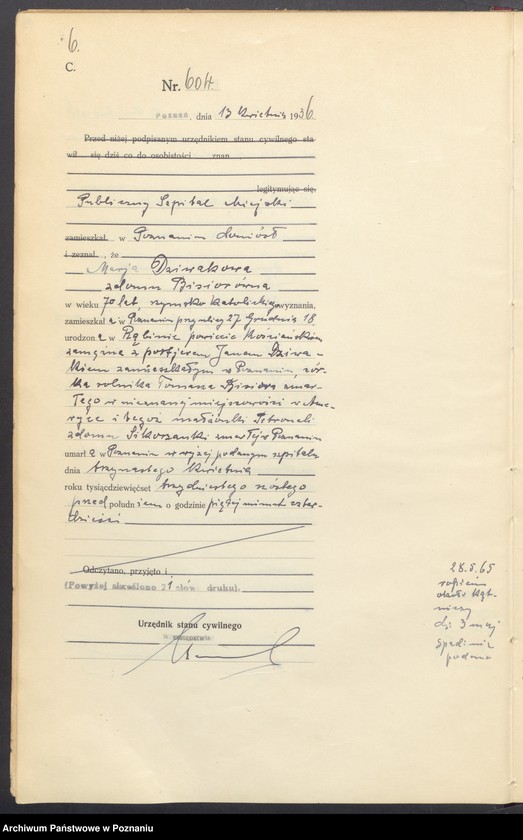 6.
C.
Nr. 604.
Poznań, dnia 13 Kwietnia 1936.
Przed niżej podpisanym urzędnikiem stanu cywilnego sta
wił się dziś co do osobistości znan
legitymując się,
Publiczny Szpital Miejski
zamieszkał w Poznaniu doniósł
i zeznał, że
Marja Dziwakowa
zdomu Bisiorówna
w wieku 70 lat, rzymsko katolickiego wyznania,
zamieszkał a w Poznaniu przy ulicy 27 Grudnia 18
urodzon a w powiecie Kościańskim
zamężna z portjerem Janem Dziwa-
kiem zamieszkałym w Poznaniu, cór-
ka rolnika Tomasza Bisiora zmar-
łego w nieznanej miejscowości w Ame-
ryce i tegoż małżonki Petroneli
zdomu Sikorzanki zmarłej w Poznaniu
umarł a w Poznaniu w wyżej podanym szpitalu
dnia trzynastego Kwietnia
roku tysiącdziewięćset trzydziestego szóstego
przed południem o godzinie piątej minut czter-
dzieści
Odczytano, przyjęto i
(Powyżej skreślono 21 słów druku).
Urzędnik stanu cywilnego
w zastępstwie
28.5.65
Archiwum Państwowe w Poznaniu